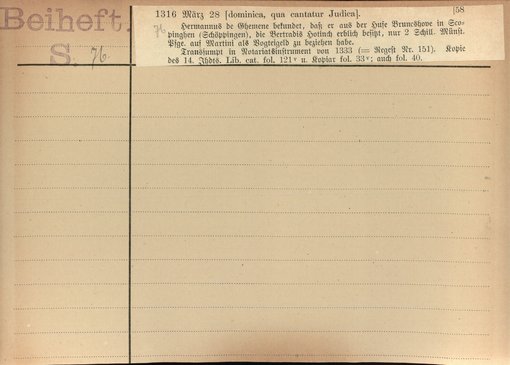 Beiheft.
S. 76.
1316 März 28 [dominica, qua cantatur Judica]. [58
76 Hermannus de Ghemene bekundet, daß er aus der Hufe Brunshove in Sco-
pinghen (Schöppingen), die Bertradis Hotinch erblich besitzt, nur 2 Schill. Münst.
Pfge. auf Martini als Vogteigeld zu beziehen habe.
Transsumpt in Notariatsinstrument von 1333 (= Regest Nr. 151). Kopie
des 14. Jhdts. Lib. cat. fol. 121ᵛ u. Kopiar fol. 33ᵛ; auch fol. 40.